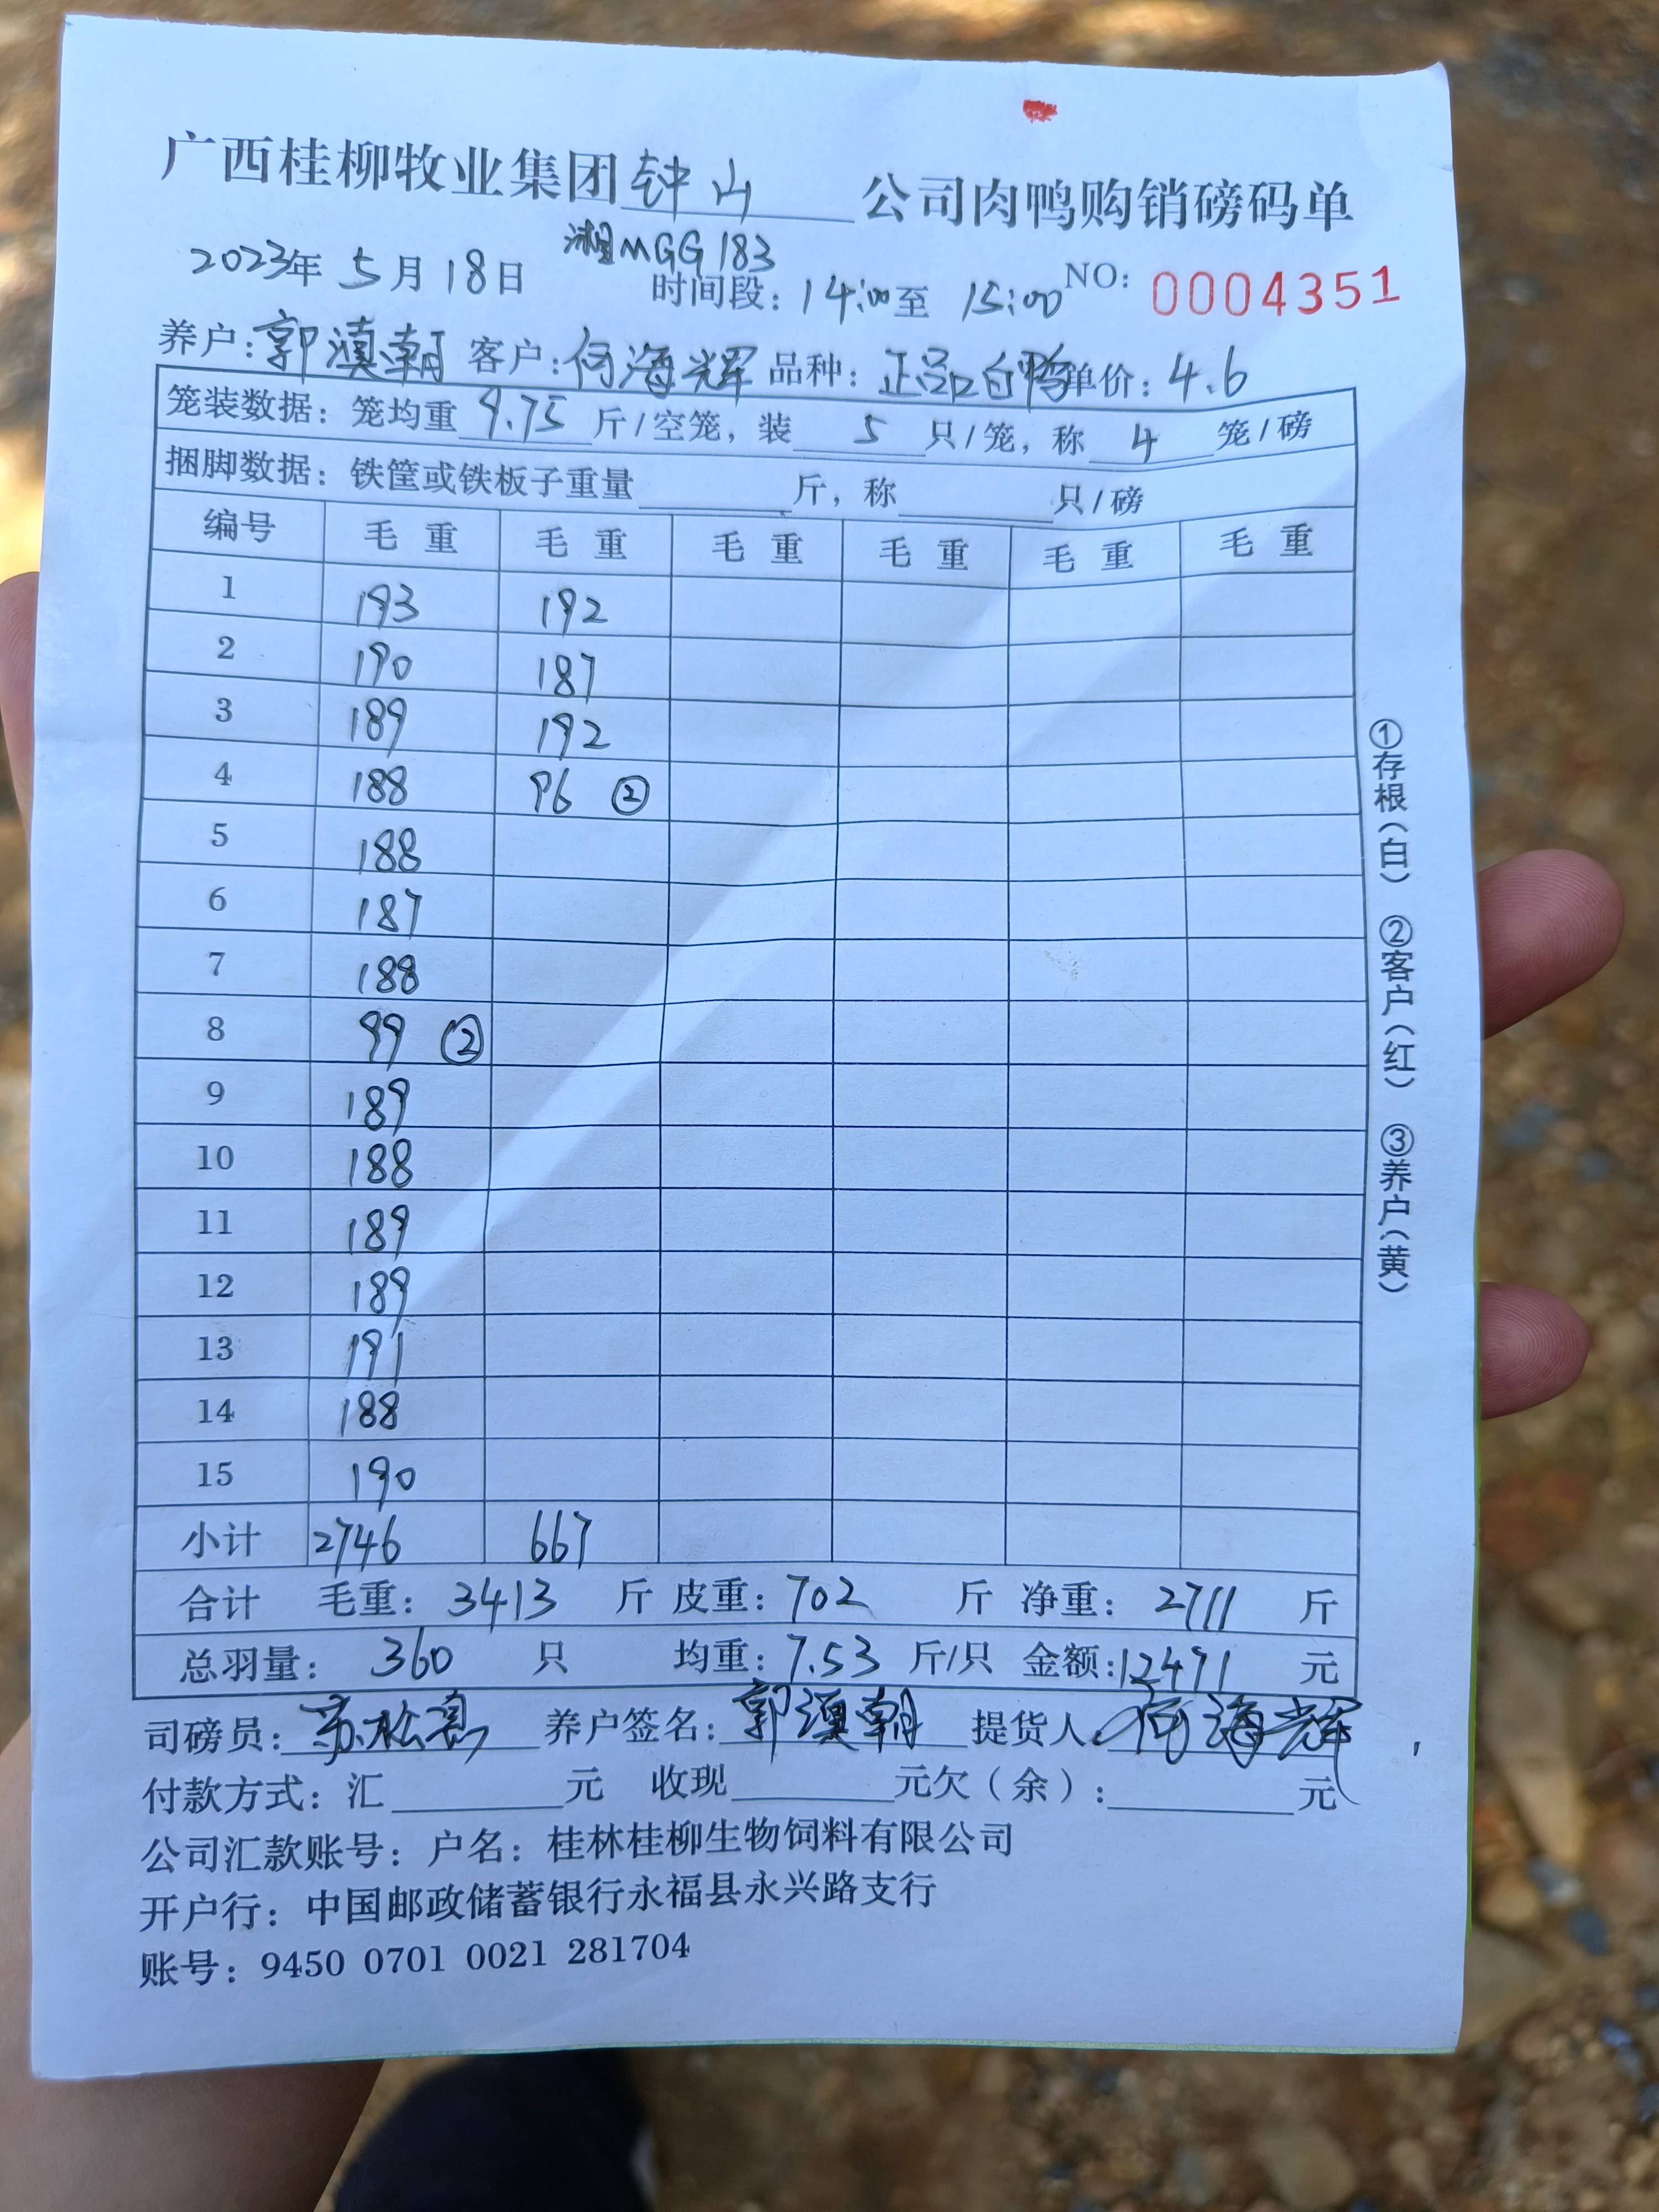 广西桂柳牧业集团钟山公司肉鸭购销磅码单
湘MGG183
2023年5月18日 时间段：14:00至15:00 NO: 0004351
养户：郭滇朝 客户：何海辉 品种：正品白鸭 单价：4.6
笼装数据：笼均重9.75斤/空笼，装5只/笼，称4笼/磅
捆脚数据：铁筐或铁板子重量 斤，称 只/磅
编号 毛重 毛重 毛重 毛重 毛重 毛重
1 193 192
2 190 187
3 189 192
4 188 96 ②
5 188
6 187
7 188
8 99 ②
9 189
10 188
11 189
12 189
13 191
14 188
15 190
小计 2746 667
合计 毛重：3413 斤 皮重：702 斤 净重：2711 斤
总羽量：360 只 均重：7.53 斤/只 金额：12471 元
司磅员：苏松亮 养户签名：郭滇朝 提货人：何海辉
付款方式：汇 元 收现 元欠（余）： 元
公司汇款账号：户名：桂林桂柳生物饲料有限公司
开户行：中国邮政储蓄银行永福县永兴路支行
账号：9450 0701 0021 281704
①存根（白） ②客户（红） ③养户（黄）